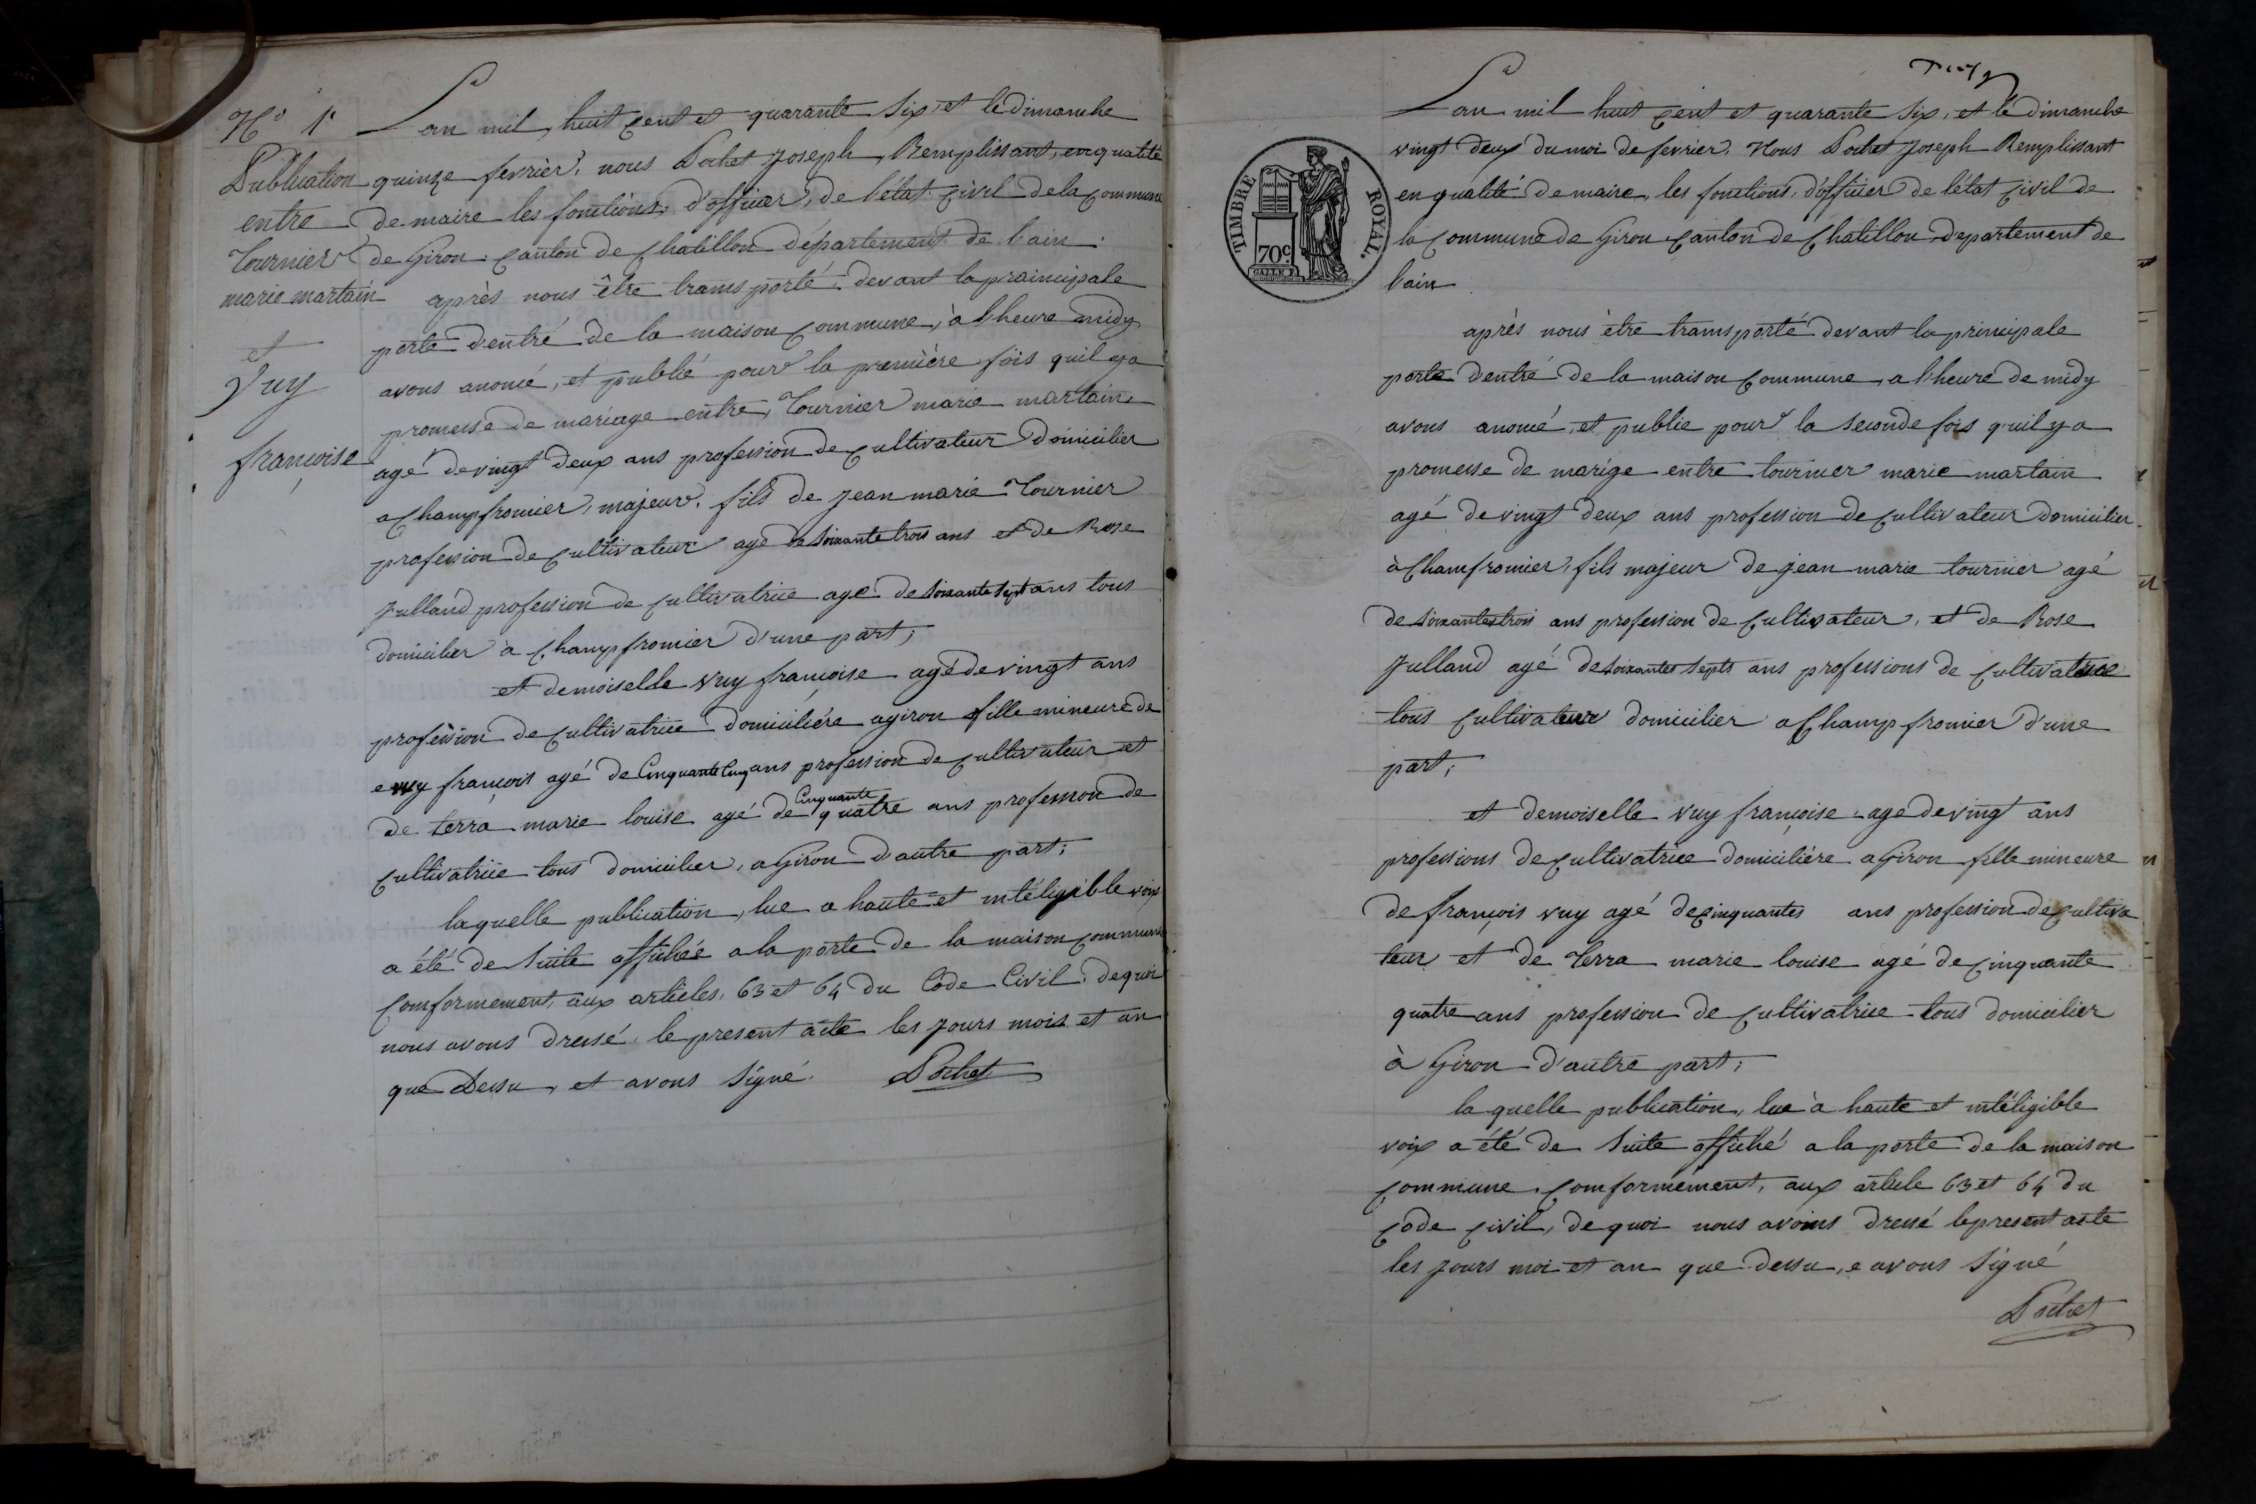 N° 1er
Publication
entre
Tournier
marie martain
et
Vuy
françoise
L'an mil huit cent et quarante six, et le dimanche
quinze fevrier, nous Pochet Joseph, Remplissant, en qualité
de maire les fonctions, d'officier, de l'état civil de la commune
de Giron canton de Chatillon département de l'ain.
après nous être transporté devant la prainicipale
porte d'entré de la maison commune, à l'heure midy
avons anoncé, et publié pour la première fois qu'il y a
promesse de mariage entre, Tournier marie martain
agé de vingt deux ans profession de cultivateur domicilier
a Champfromier, majeur, fils de jean marie Tournier
profession de cultivateur agé de soixante trois ans et de Rose
Julland profession de cultivatrice agé de soixante sept ans tous
domicilier à Champfromier d'une part;
et demoiselle Vuy françoise agé de vingt ans
profession de cultivatrice domiciliére a giron fille mineure de
vuy françois agé de Cinquante Cinq ans profession de cultivateur et
de terra marie louise agé de Cinquante quatre ans profession de
cultivatriie tous domicilier, a Giron d'autre part;
laquelle publication, lue a haute et intéligible voix
a été de suite affichée a la porte de la maison commune
comformement, aux articles, 63 et 64 du Code Civil, de quoi
nous avons dressé, le present acte les jours mois et an
que Dessu, et avons signé. Pochet
L'an mil huit cent et quarante six, et le dimanche
vingt deux du moi de fevrier. Nous Pochet Joseph Remplissant
en qualité de maire, les fonctions, d'officier de l'état civil de
la Commune de Giron canton de Chatillon departement de
l'ain
TIMBRE ROYAL.
70c.
après nous être transporté devant la principale
porte d'entré de la maison commune, a l'heure de midy
avons anoncé, et publie pour la seconde fois qu'il y a
promesse de marige entre tournier marie martain
agé de vingt deux ans profession de cultivateur domicilier
à Chamfromier, fils majeur de jean marie tournier agé
de soixantestrois ans profession de Cultivateur, et de Rose
Julland agé de soixantes septs ans professions de cultivatrice
tous cultivateur domicilier a Champfromier d'une
part;
et demoiselle vuy françoise age de vingt ans
professions de cultivatrice domiciliére a Giron fille mineure
de françois vuy agé de cinquantes ans profession de cultiva
teur et de Terra marie louise agé de cinquante
quatre ans profession de cultivatrice tous domicilier
à Giron d'autre part;
la quelle publication, lue à haute et intéligible
voix a été de suite affiché a la porte de la maison
commune comformément, aux article 63 et 64 du
code civil, de quoi nous avoins dressé le present acte
les jours moi et an que dessu, e avons signé
Pochet